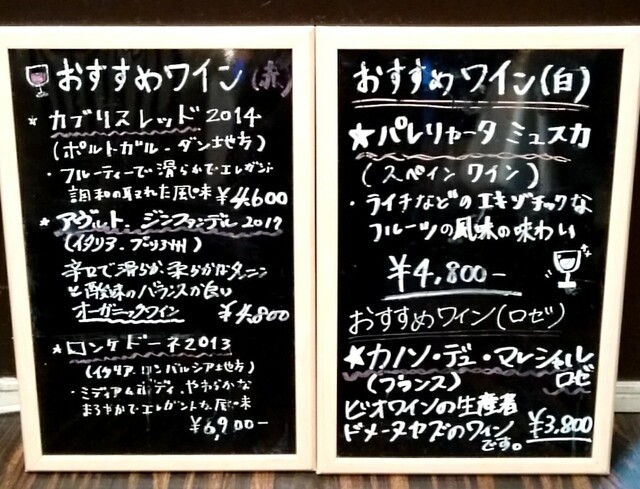 おすすめワイン(赤)
★カブリスレッド 2014
(ポルトガル-ダン地方)
・フルーティーで滑らかでエレガント
調和の取れた風味 ¥4,600
★アヴルト・ジンファンデル2017
(イタリア・プーリア州)
辛口で滑らか、柔らかなタンニン
と酸味のバランスが良い
オーガニックワイン ¥4,800
★ロンケドーネ2013
(イタリア・ロンバルシア地方)
・ミディアムボディ、やわらかな
まろやかでエレガントな風味
¥6,900-
おすすめワイン(白)
★パレリャータ ミュスカ
(スペイン ワイン)
・ライチなどのエキゾチックな
フルーツの風味の味わい
¥4,800-
おすすめワイン(ロゼ)
★カノン・デュ・マレシャル
(フランス) ロゼ
ビオワインの生産者
ドメーヌカズのワイン ¥3,800
です。